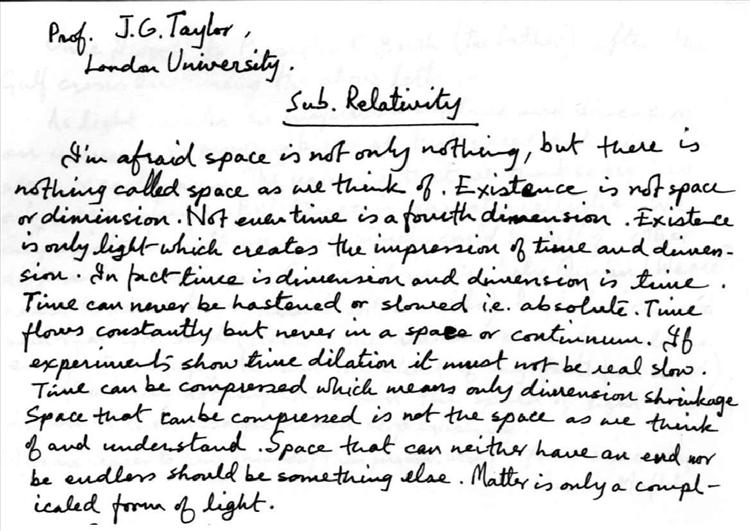 Prof. J.G. Taylor,
London University.
Sub. Relativity
I'm afraid space is not only nothing, but there is
nothing called space as we think of. Existence is not space
or diminsion. Not even time is a fourth dimension. Existence
is only light which creates the impression of time and dimen-
sion. In fact time is dimension and dimension is time.
Time can never be hastened or slowed i.e. absolute. Time
flows constantly but never in a space or continuum. If
experiments show time dilation it must not be real slow.
Time can be compressed which means only dimension shrinkage
Space that can be compressed is not the space as we think
of and understand. Space that can neither have an end nor
be endless should be something else. Matter is only a compl-
icated form of light.